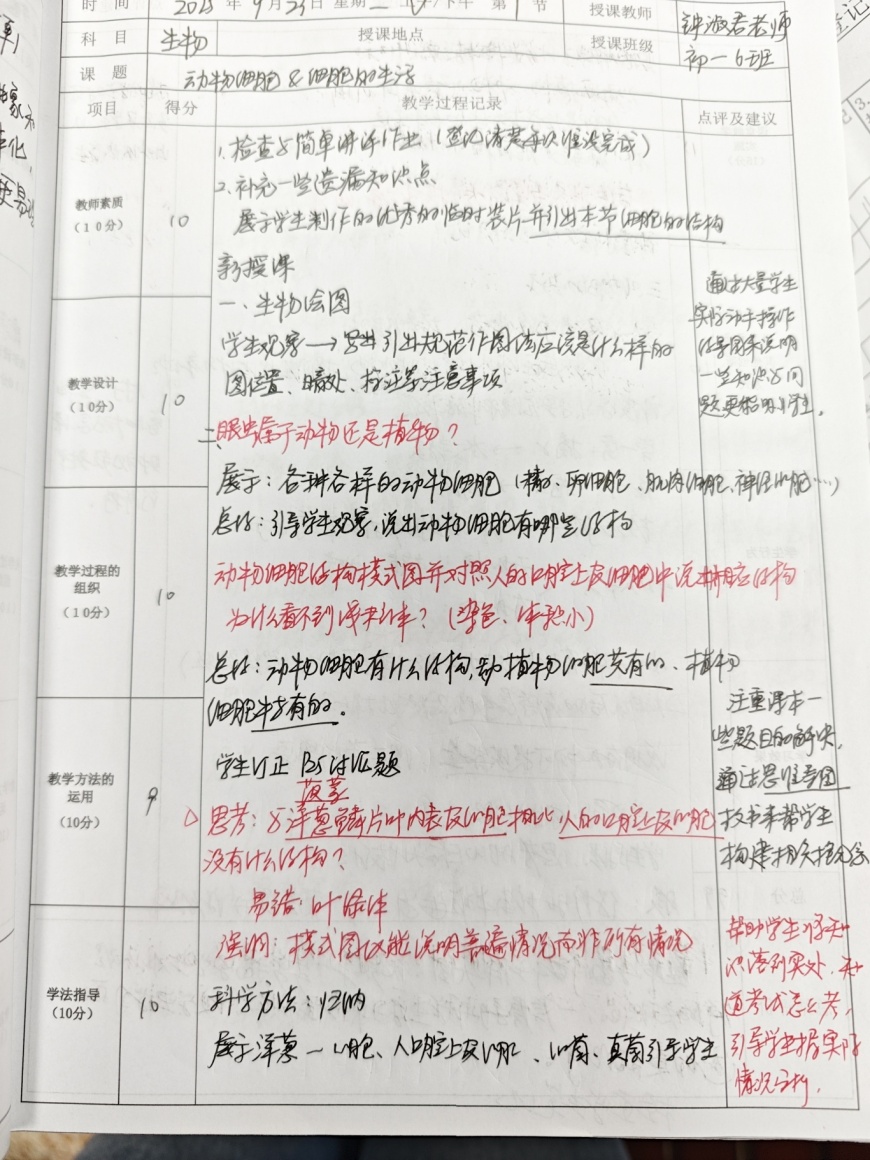 时间 2025年9月23日 星期二 上/下午 第1节 授课教师 钟淑君老师
科目 生物 授课地点 授课班级 初一6班
课题 动物细胞&细胞的生活
项目 得分 教学过程记录 点评及建议
教师素质
(10分) 10
1.检查与简单讲评作业(登记清楚每次谁没完成)
2.补充一些遗漏知识点
展示学生制作的优秀的临时装片并引出本节细胞的结构
新授课
一、生物绘图
教学设计
(10分) 10
学生观察→ 引出规范作图法应该是什么样的
图位置、暗处、标注等注意事项
通过大量学生
实际动手操作
的 图来说明
一些知识与问
题更 学生。
二、眼虫属于动物还是植物?
展示:各种各样的动物细胞(精子、卵细胞、肌肉细胞、神经细胞…)
总结:引导学生观察,说出动物细胞有哪些结构
教学过程的
组织
(10分) 10
动物细胞结构模式图并对照人的口腔上皮细胞中说出相应结构
为什么看不到线粒体?(染色、体积小)
总结:动物细胞有什么结构,动植物细胞共有的、植物
细胞特有的。
学生订正 讨论题
教学方法的
运用
(10分) 9
思考:与洋葱鳞片叶内表皮细胞相比,人的口腔上皮细胞
没有什么结构?
易错:叶绿体
强调:模式图仅能说明普遍情况而非所有情况
注重课本一
些题目的解决,
通过思维导图
板书来帮学生
构建相关概念
学法指导
(10分) 10
科学方法:归纳
展示洋葱 细胞、人口腔上皮细胞、细菌、真菌引导学生
帮助学生将知
识落到实处,知
道考试怎么考,
引导学生据实际
情况分析.